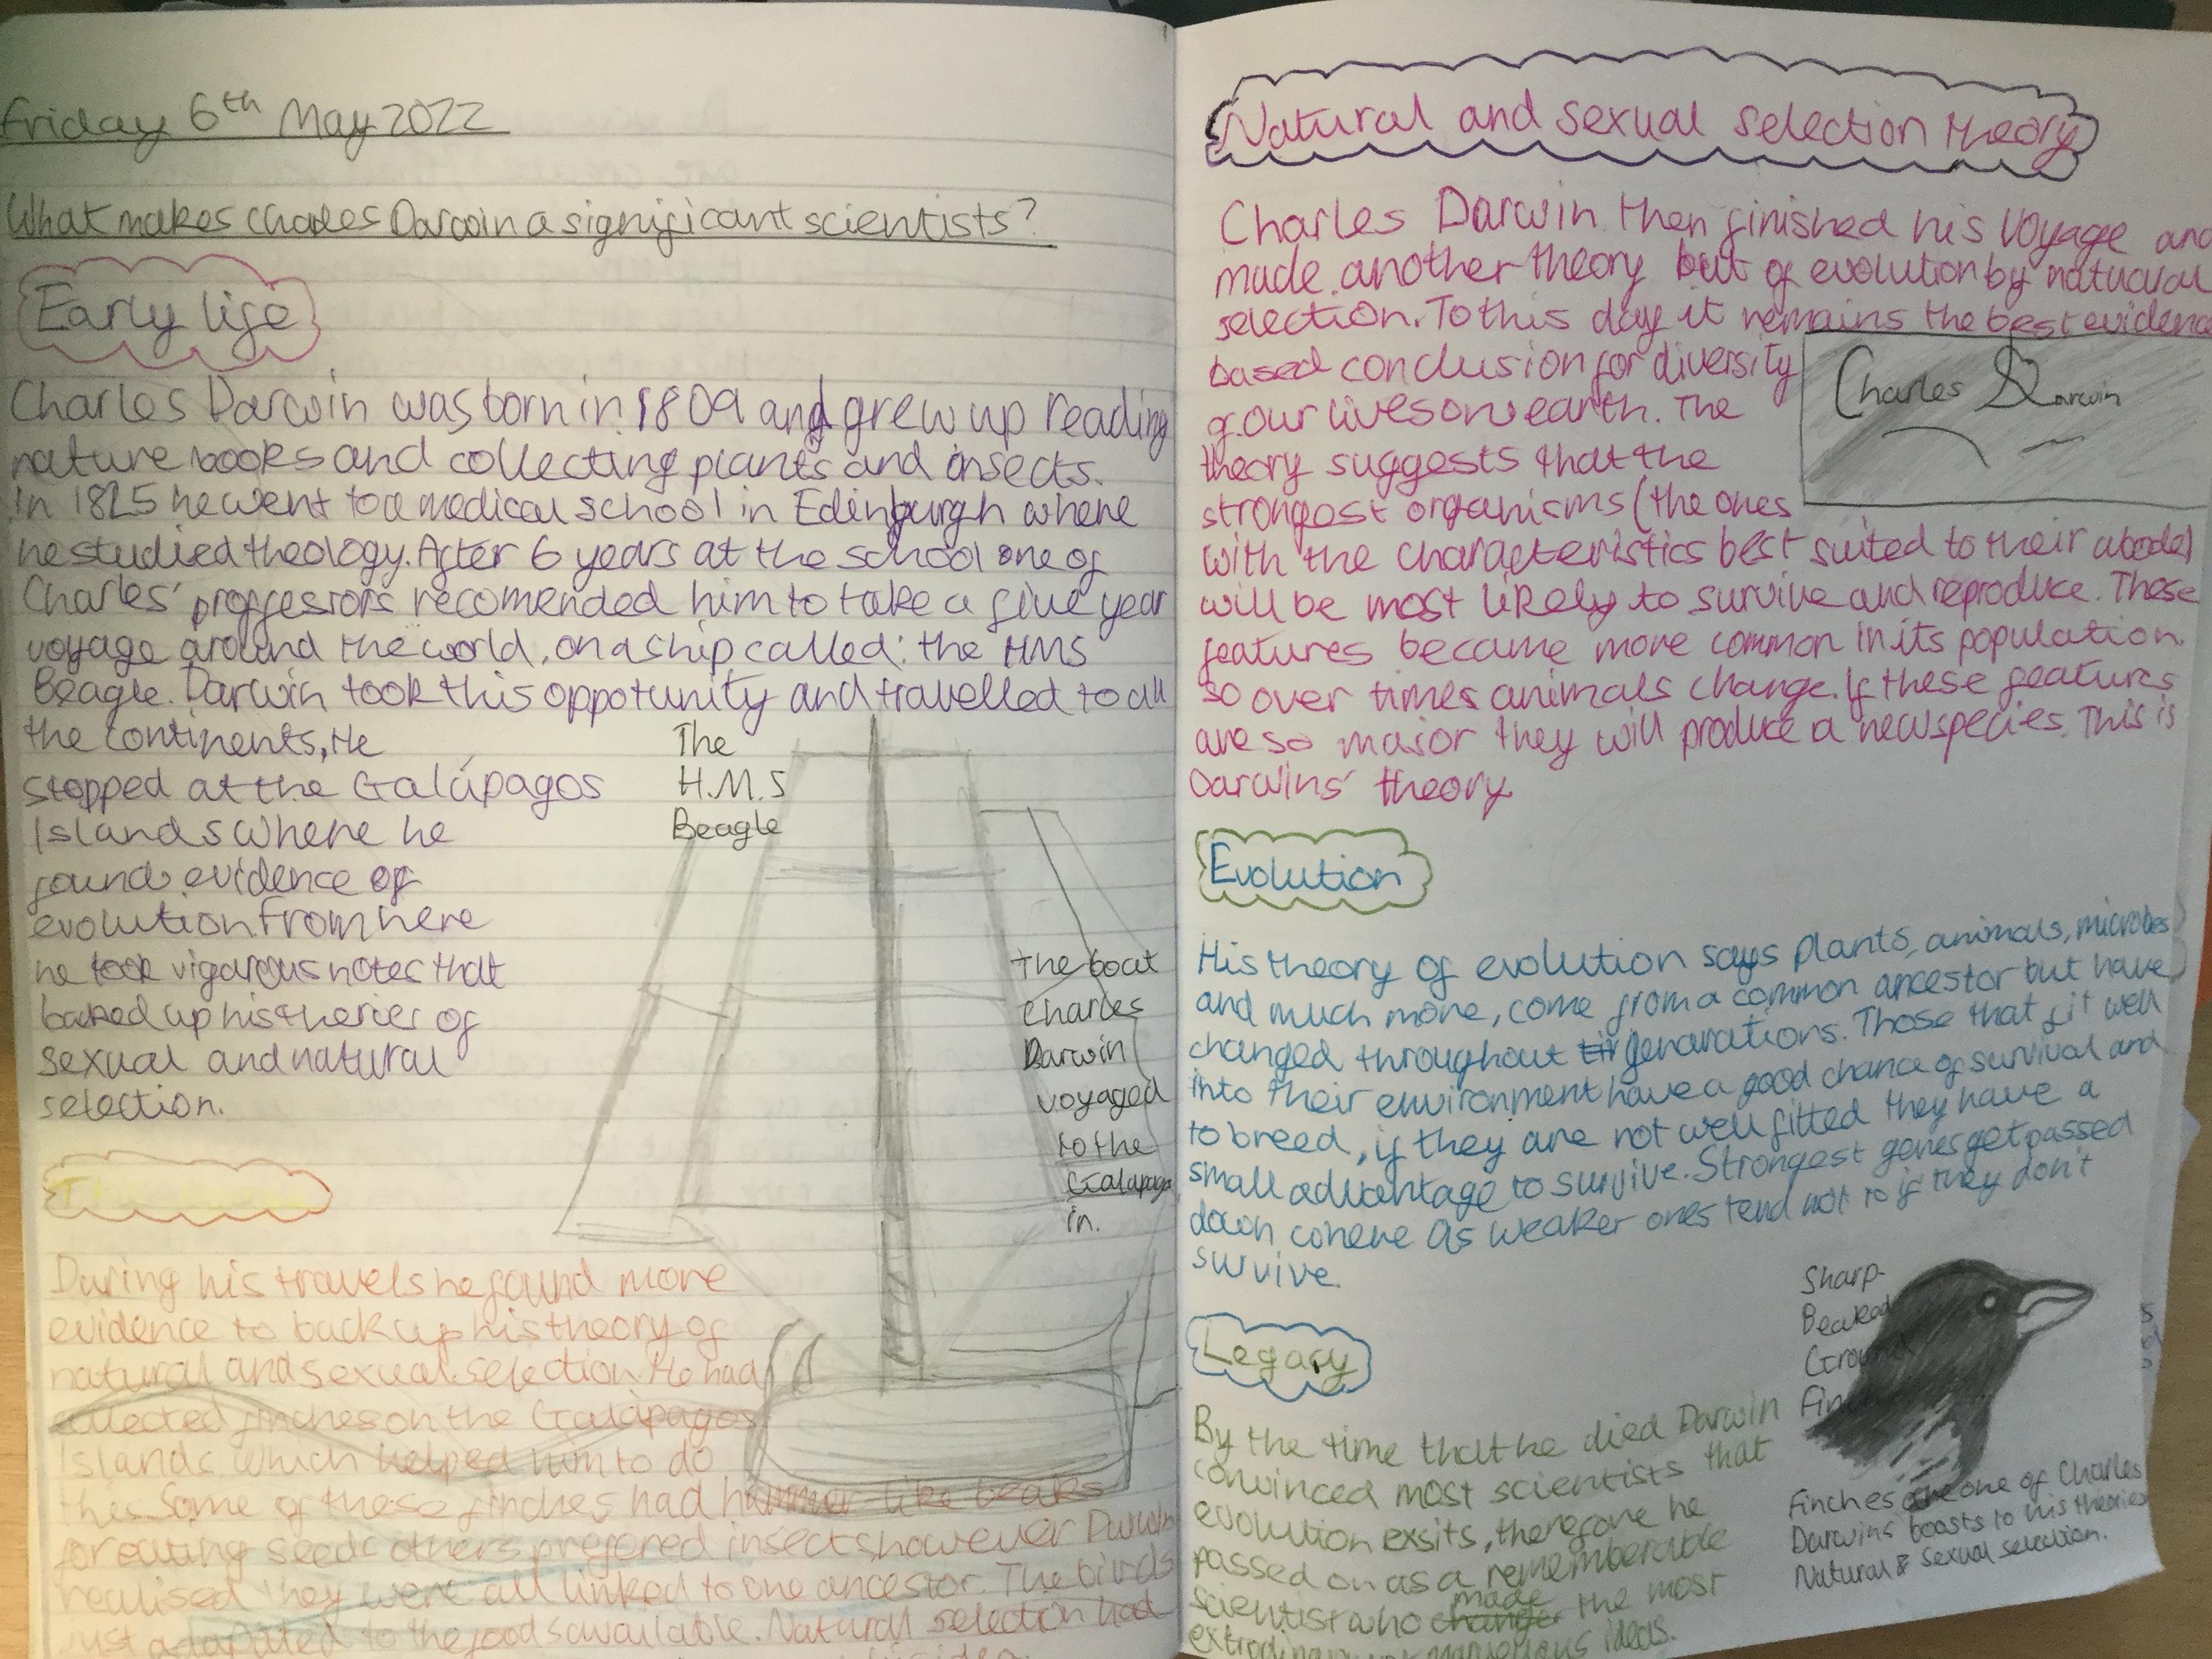 Friday 6th May 2022
What makes Charles Darwin a significant scientists?
Early life
Charles Darwin was born in 1809 and grew up reading
nature books and collecting plants and insects.
In 1825 he went to a medical school in Edinburgh where
he studied theology. After 6 years at the school one of
Charles' proffessors recomended him to take a five year
voyage around the world, on a ship called: the HMS
Beagle. Darwin took this oppotunity and travelled to all
the continents, He
stopped at the Galápagos
Islands where he
found evidence of
evolution from here
he took vigarous notes that
backed up his therier of
sexual and natural
selection.
The
H.M.S
Beagle
The boat
Charles
Darwin
voyaged
to the
Galapagos
in.
During his travels he found more
evidence to back up his theory of
natural and sexual selection. He had
collected finches on the Galápagos
Islands which helped him to do
this. Some of these finches had hammer-like beaks
for eating seeds others prefered insects however Darwin
realised they were all linked to one ancestor. The birds
just adapted to the foods available. Natural selection had
idea.
Natural and sexual selection theory
Charles Darwin then finished his voyage and
made another theory but of evolution by natural
selection. To this day it remains the best evidence
based conclusion for diversity
of our lives on earth. The
theory suggests that the
strongest organisms (the ones
with the characteristics best suited to their abode)
will be most likely to survive and reproduce. These
features became more common in its population.
so over times animals change. If these features
are so major they will produce a new species. This is
Darwins' theory.
Charles Darwin
Evolution
His theory of evolution says plants, animals, microbes
and much more, come from a common ancestor but have
changed throughout genarations. Those that fit well
into their environment have a good chance of survival and
to breed, if they are not well fitted they have a
small advantage to survive. Strongest genes get passed
down where as weaker ones tend not to if they don't
survive.
Legacy
By the time that he died Darwin
convinced most scientists that
evolution exsits, therefore he
passed on as a rememberable
scientist who made the most
ideas.
Sharp-
Beaked
Ground
Finch
Finches are one of Charles
Darwins' boasts to his theories
Natural & Sexual selection.